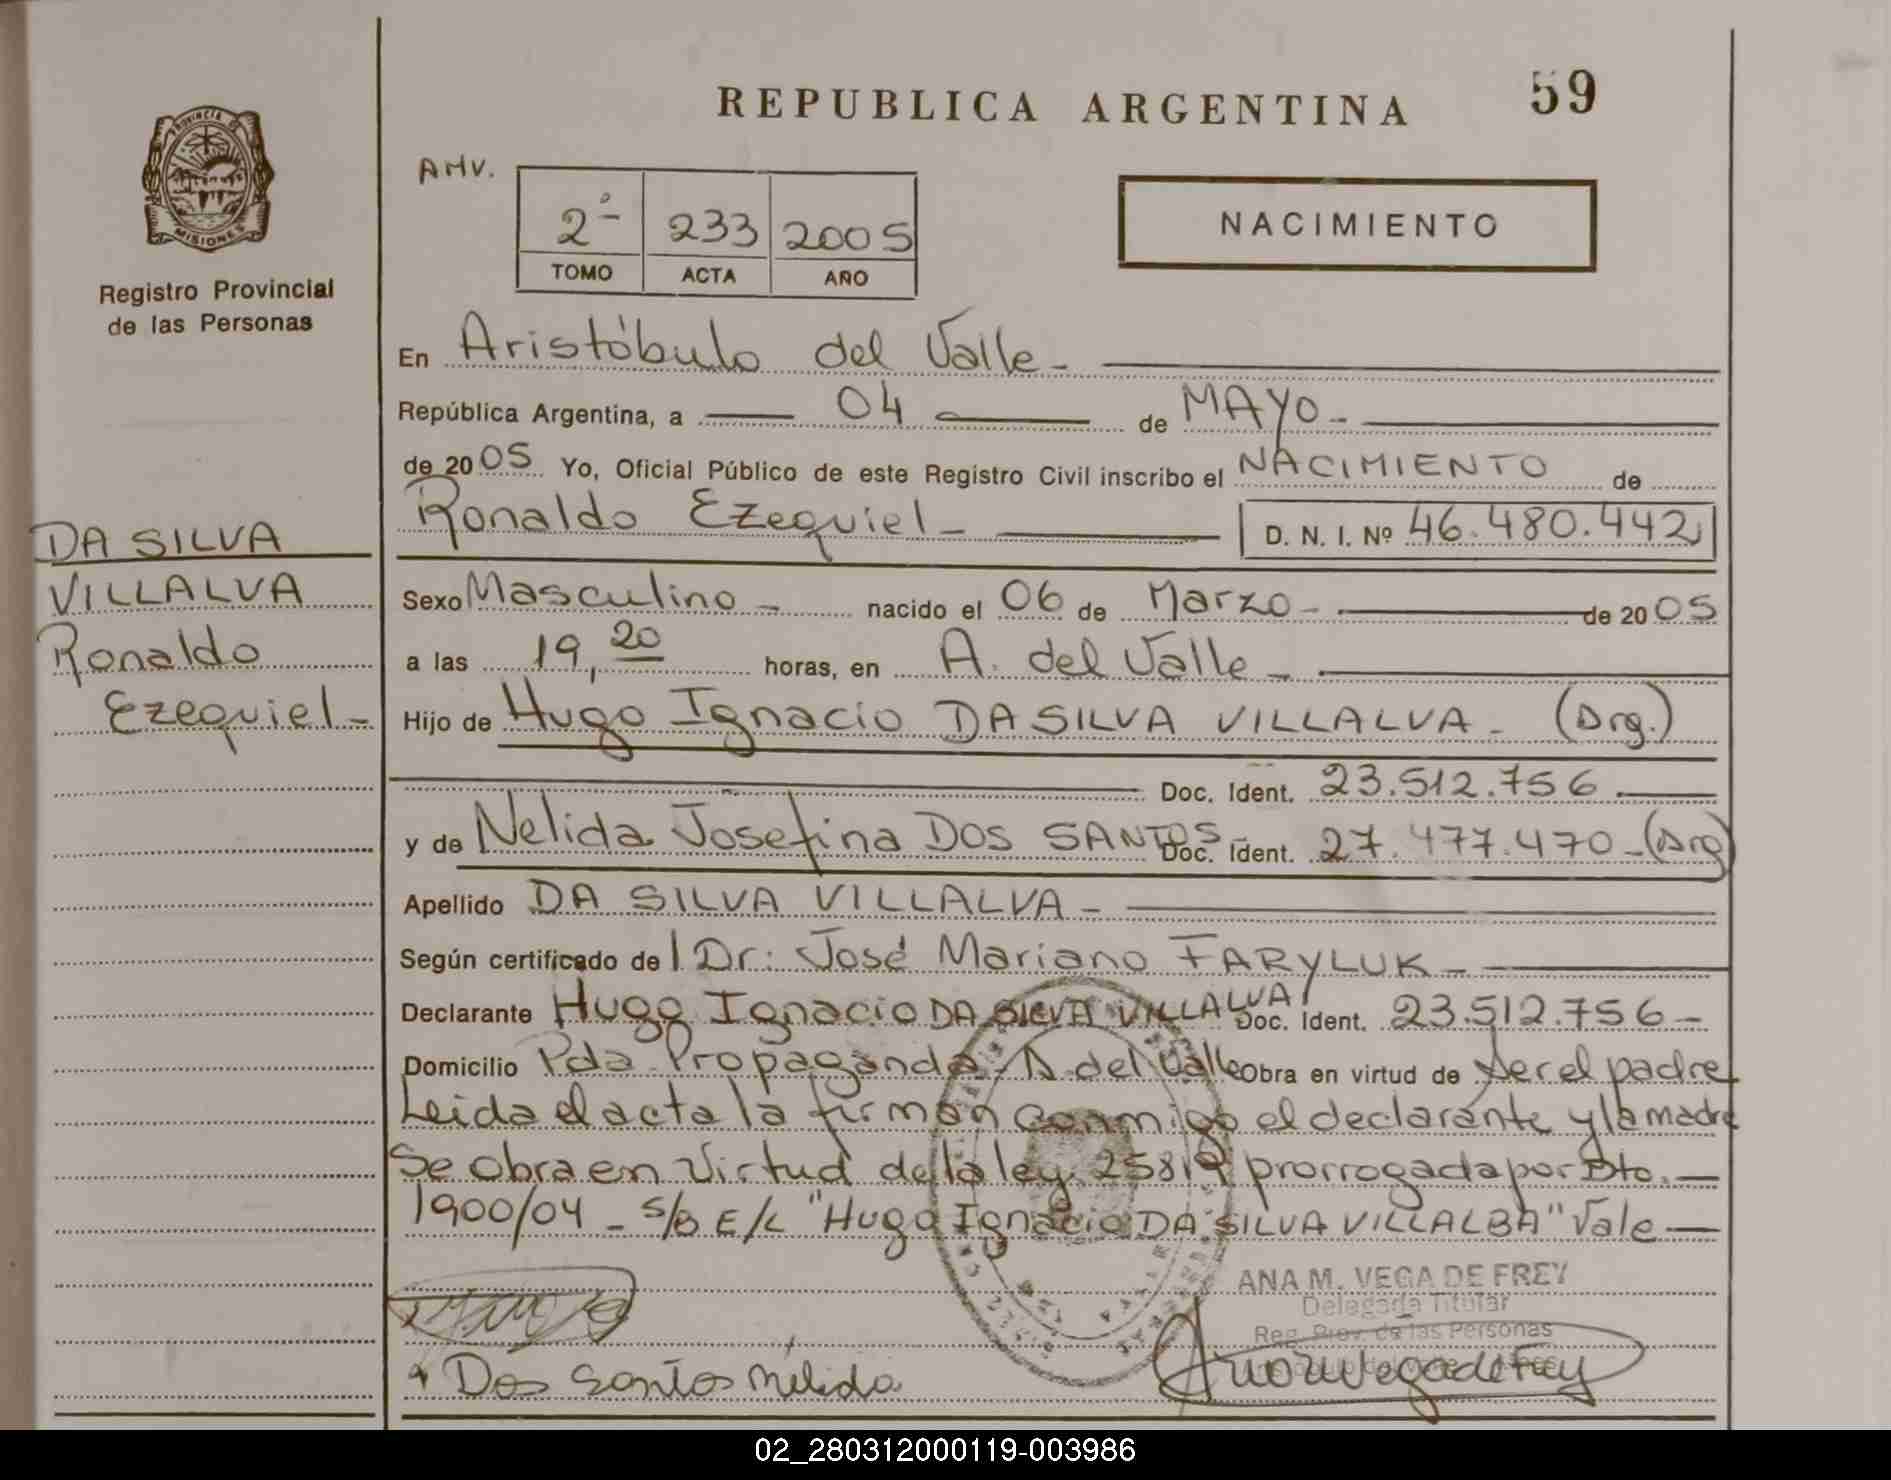 REPUBLICA ARGENTINA 59
PROVINCIA DE
MISIONES
Registro Provincial
de las Personas
AMV.
2º 233 2005
TOMO ACTA AÑO
NACIMIENTO
En Aristóbulo del Valle -
República Argentina, a 04 de MAYO -
de 2005 Yo, Oficial Público de este Registro Civil inscribo el NACIMIENTO de
Ronaldo Ezequiel - D. N. I. Nº 46.480.442
DA SILVA
VILLALVA
Ronaldo
Ezequiel -
Sexo Masculino - nacido el 06 de Marzo - de 2005
a las 19,20 horas, en A. del Valle -
Hijo de Hugo Ignacio DA SILVA VILLALVA - (Arg.)
Doc. Ident. 23.512.756
y de Nelida Josefina DOS SANTOS - Doc. Ident. 27.477.470 - (Arg)
Apellido DA SILVA VILLALVA -
Según certificado del Dr: José Mariano FARYLUK -
Declarante Hugo Ignacio DA SILVA VILLALVA Doc. Ident. 23.512.756 -
Domicilio Pda Propaganda, A. del Valle Obra en virtud de ser el padre
Leida el acta la firman conmigo el declarante y la madre
Se obra en virtud de la ley 25819 prorrogada por Dto. -
1900/04 - S/B E/L "Hugo Ignacio DA SILVA VILLALBA" Vale
ANA M. VEGA DE FREY
Delegada Titular
Reg. Prov. de las Personas
Dos Santos Nélida
02_280312000119-003986